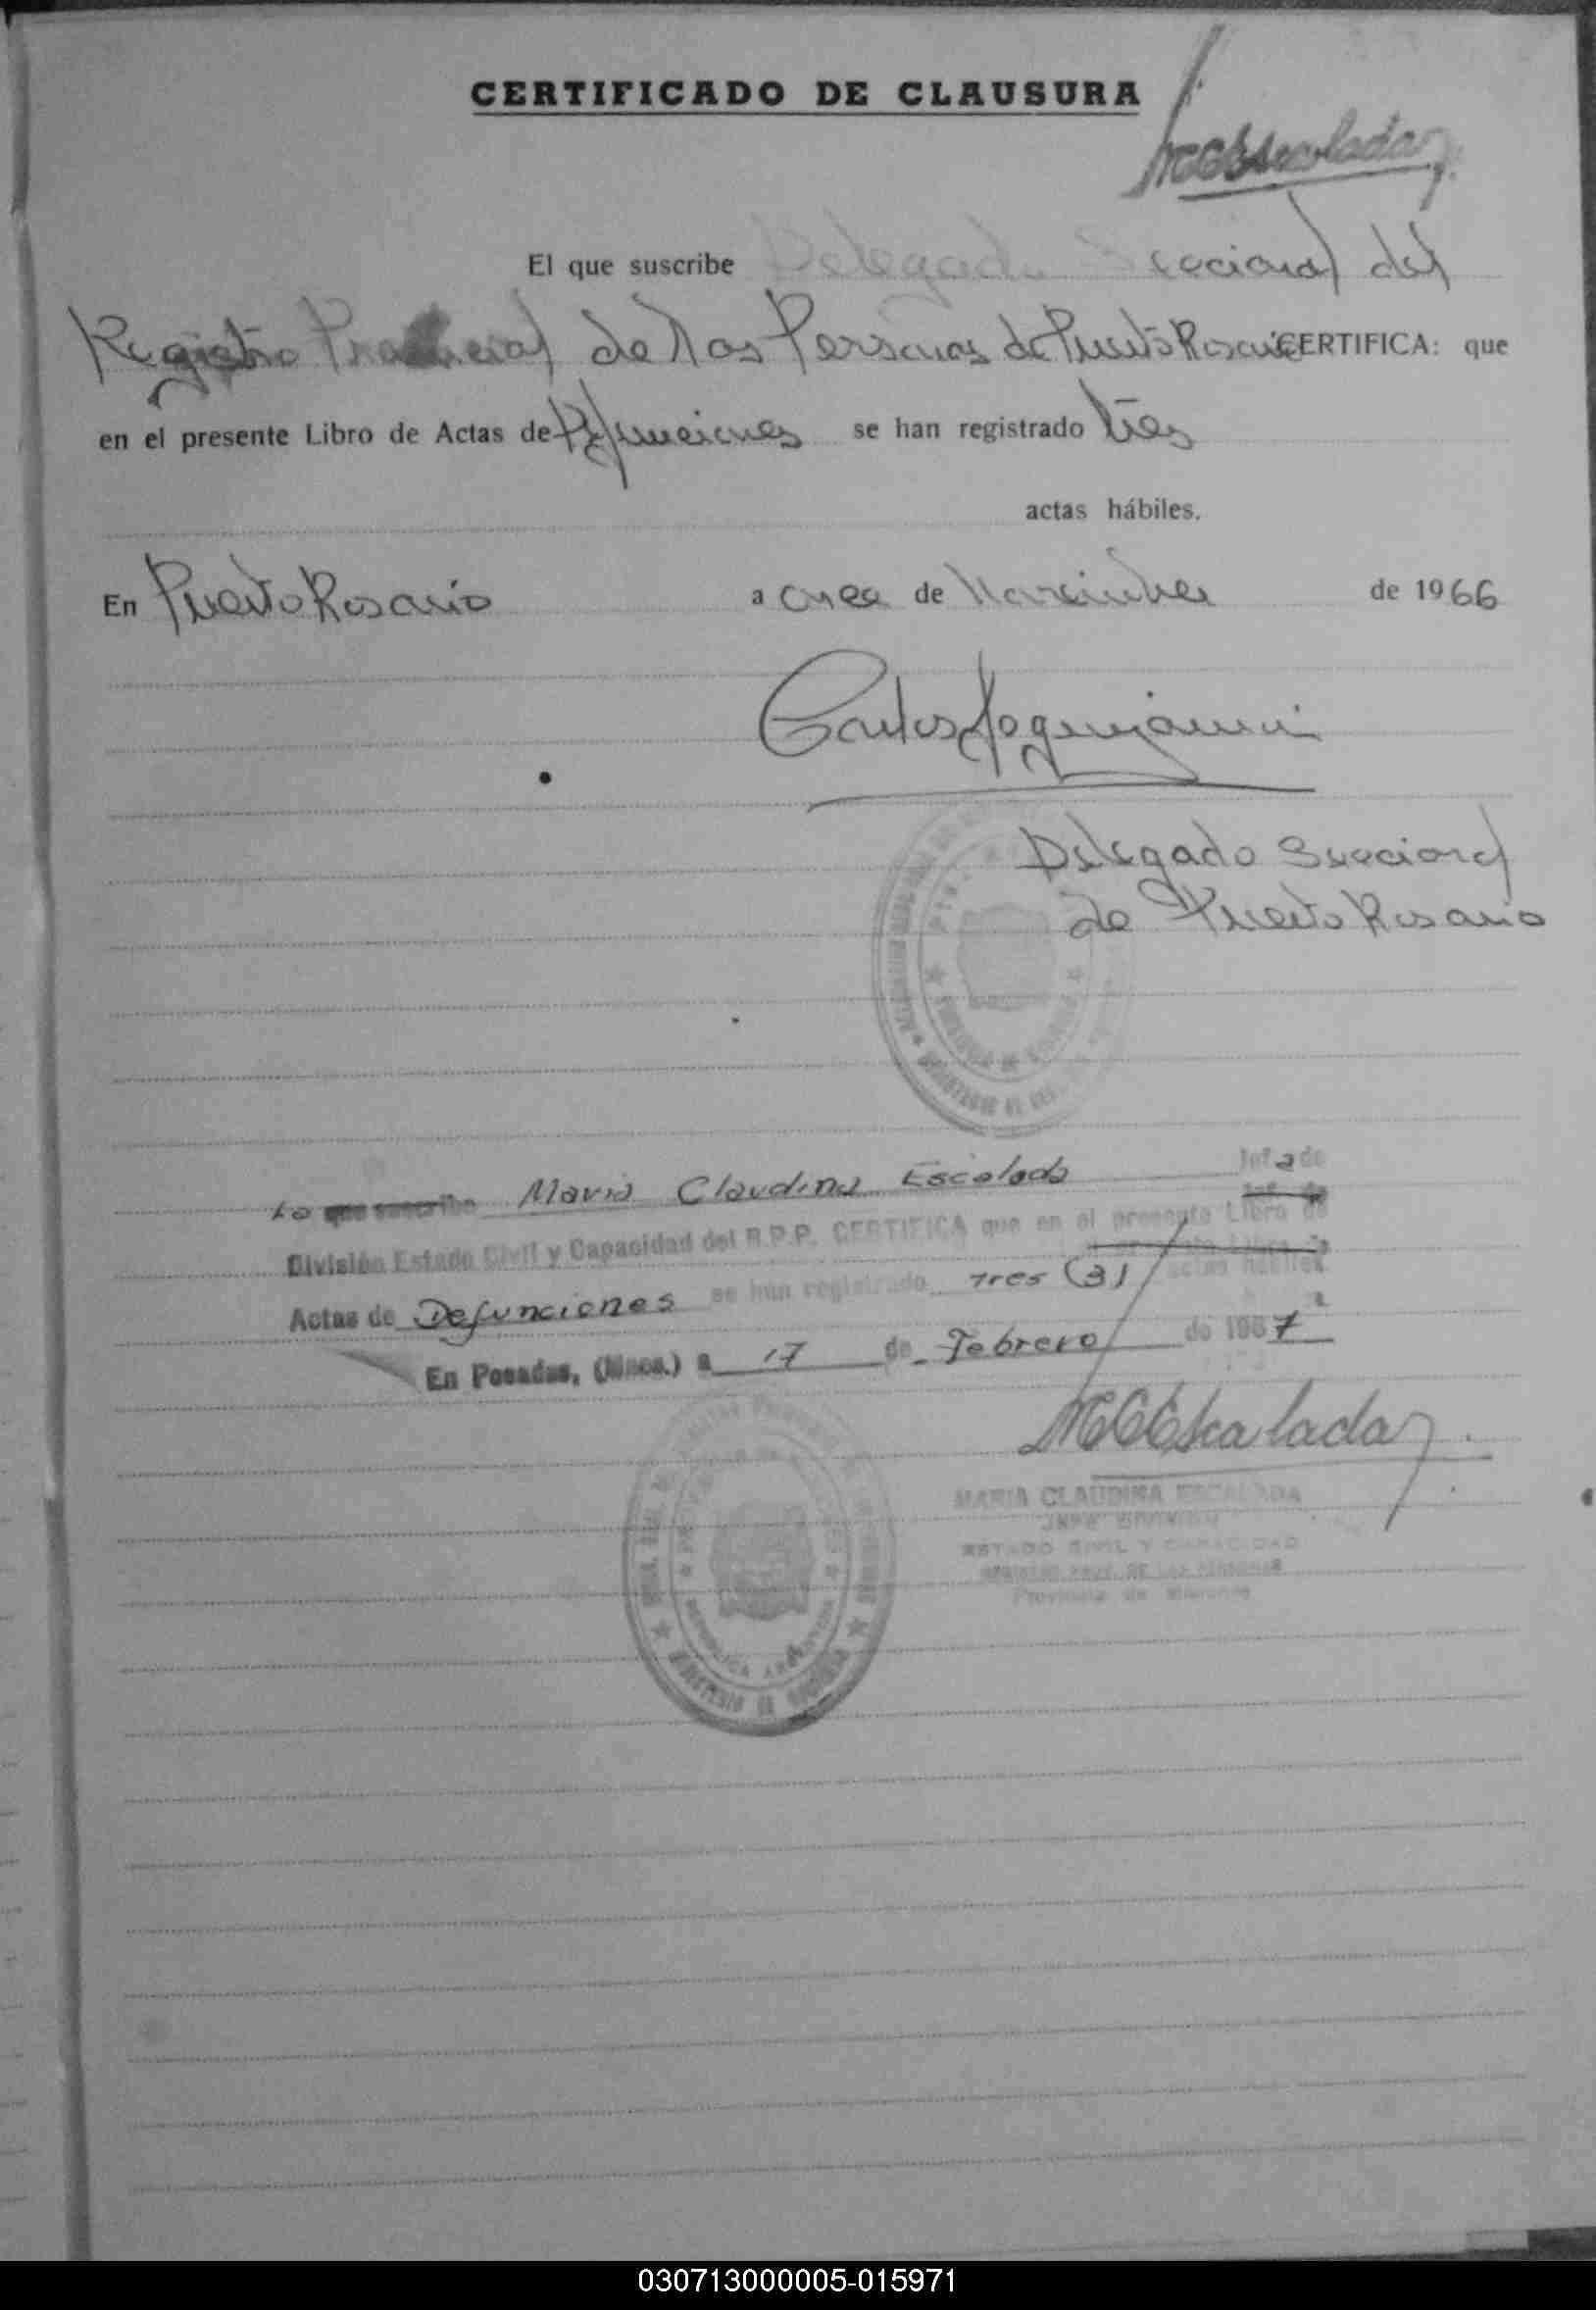 CERTIFICADO DE CLAUSURA
MCEscalada
El que suscribe Delegado Seccional del
Registro Provincial de las Personas de Puerto Rosario CERTIFICA: que
en el presente Libro de Actas de Defunciones se han registrado tres
actas hábiles.
En Puerto Rosario a once de Noviembre de 1966
Carlos
Delegado Seccional
de Puerto Rosario
La que suscribe Maria Claudina Escalada Jefa de
División Estado Civil y Capacidad del R.P.P. CERTIFICA que en el presente Libro de
Actas de Defunciones se han registrado tres (3) actas hábiles
En Posadas, (Mnes.) a 17 de Febrero de 1967
MCEscalada
MARIA CLAUDINA ESCALADA
JEFE DIVISION
ESTADO CIVIL Y CAPACIDAD
REGISTRO PROV. DE LAS PERSONAS
Provincia de Misiones
REPUBLICA ARGENTINA
030713000005-015971